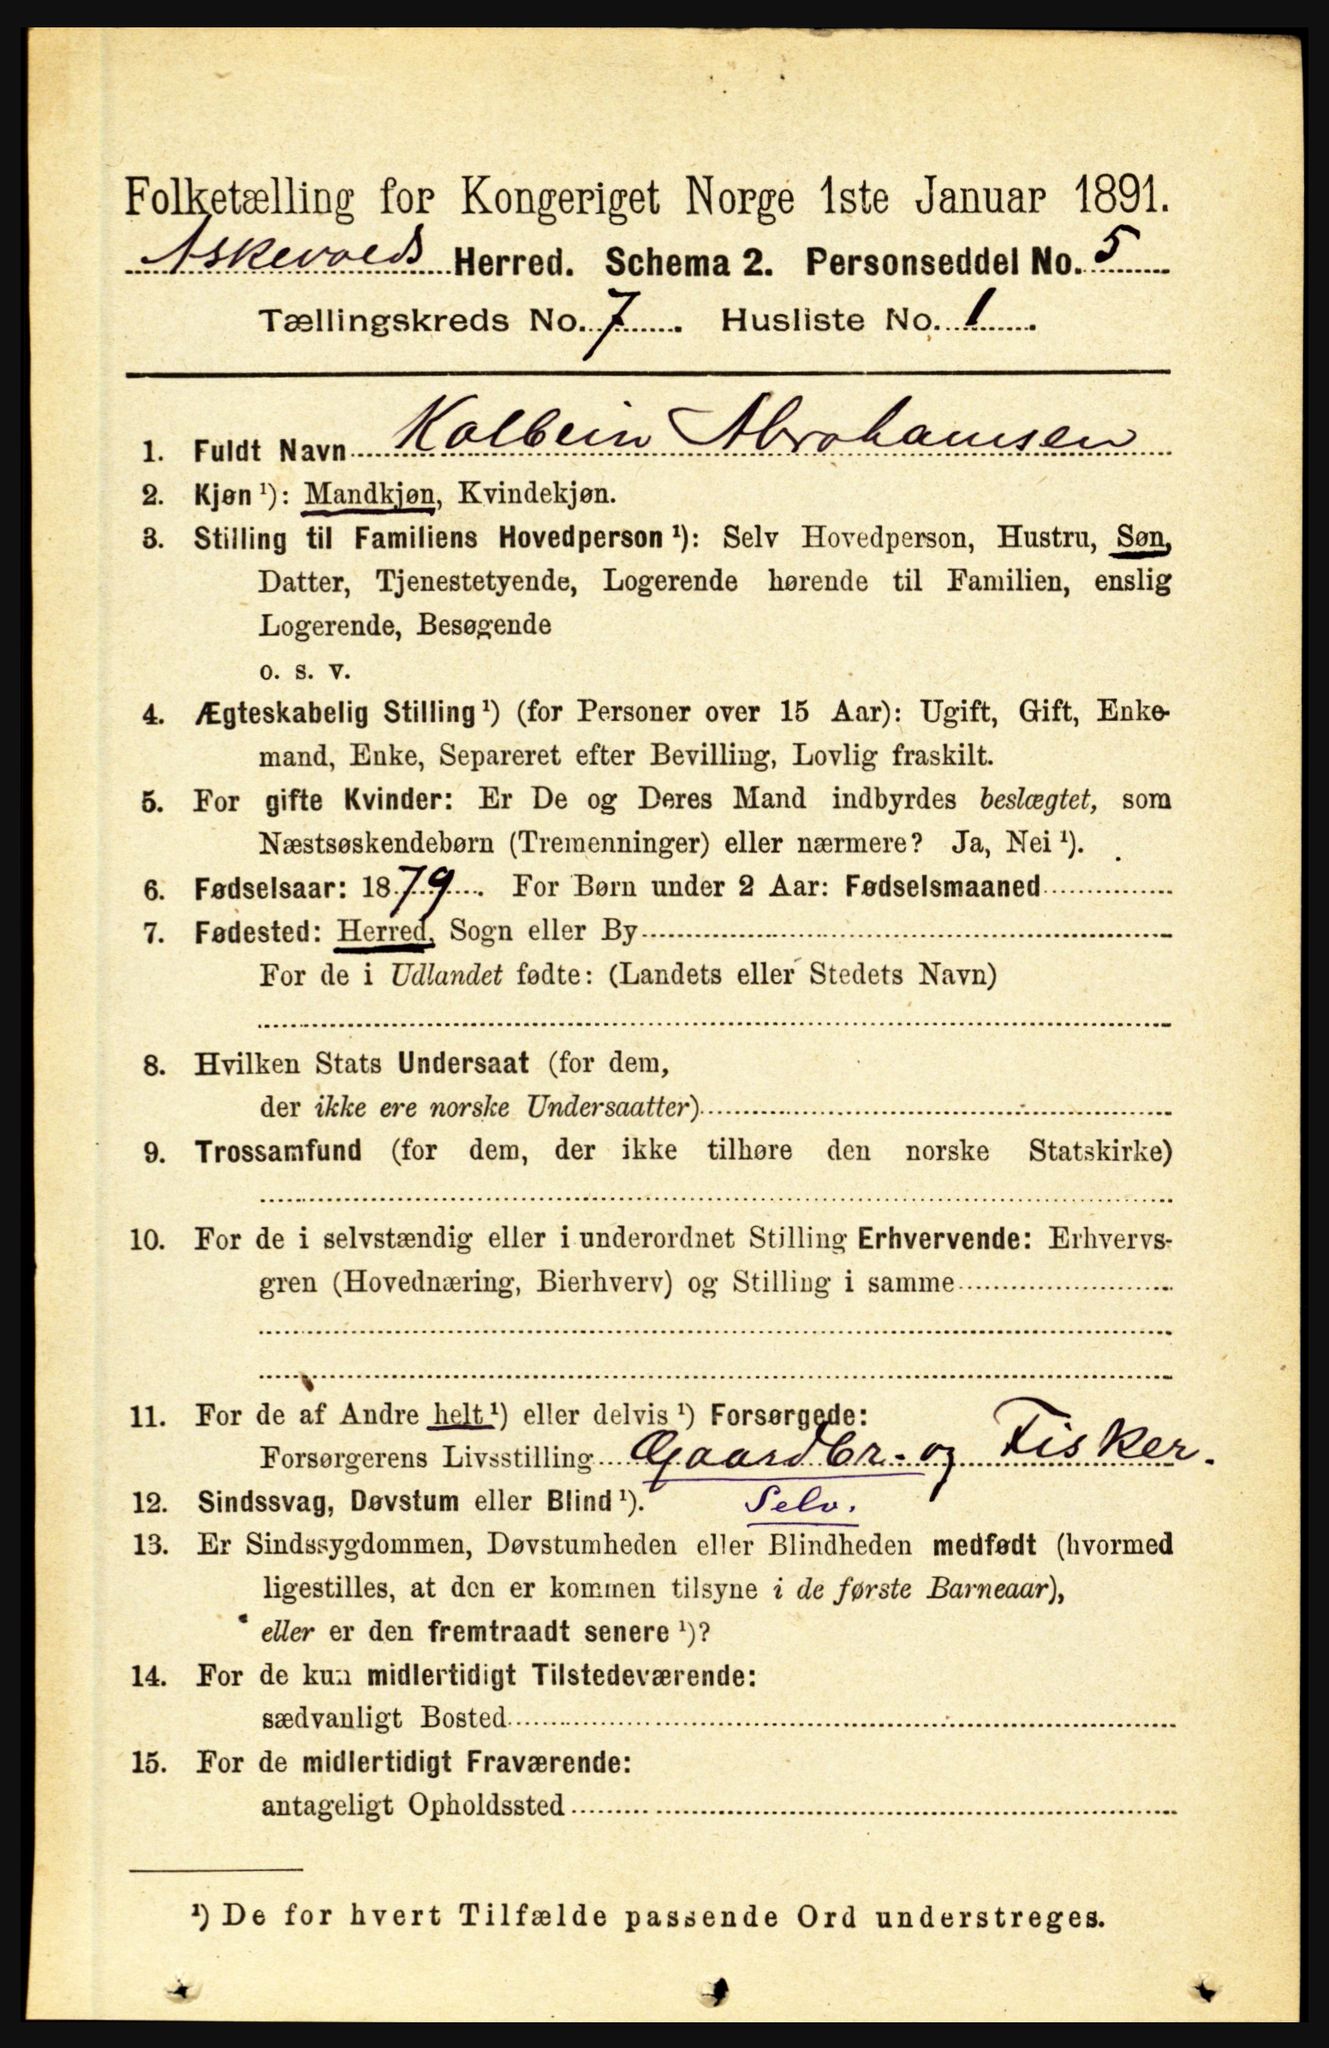 Folketælling for Kongeriget Norge 1ste Januar 1891.
Askevolds Herred. Schema 2. Personseddel No. 5
Tællingskreds No. 7. Husliste No. 1.
1. Fuldt Navn Kolbein Abrahamsen
2. Kjøn ¹): Mandkjøn, Kvindekjøn.
3. Stilling til Familiens Hovedperson ¹): Selv Hovedperson, Hustru, Søn,
Datter, Tjenestetyende, Logerende hørende til Familien, enslig
Logerende, Besøgende
o. s. v.
4. Ægteskabelig Stilling ¹) (for Personer over 15 Aar): Ugift, Gift, Enke-
mand, Enke, Separeret efter Bevilling, Lovlig fraskilt.
5. For gifte Kvinder: Er De og Deres Mand indbyrdes beslægtet, som
Næstsøskendebørn (Tremenninger) eller nærmere? Ja, Nei ¹).
6. Fødselsaar: 1879. For Børn under 2 Aar: Fødselsmaaned
7. Fødested: Herred, Sogn eller By
For de i Udlandet fødte: (Landets eller Stedets Navn)
8. Hvilken Stats Undersaat (for dem,
der ikke ere norske Undersaatter)
9. Trossamfund (for dem, der ikke tilhøre den norske Statskirke)
10. For de i selvstændig eller i underordnet Stilling Erhvervende: Erhvervs-
gren (Hovednæring, Bierhverv) og Stilling i samme
11. For de af Andre helt ¹) eller delvis ¹) Forsørgede:
Forsørgerens Livsstilling Gaardbr. og Fisker.
12. Sindssvag, Døvstum eller Blind ¹). Selv.
13. Er Sindssygdommen, Døvstumheden eller Blindheden medfødt (hvormed
ligestilles, at den er kommen tilsyne i de første Barneaar),
eller er den fremtraadt senere ¹)?
14. For de kun midlertidigt Tilstedeværende:
sædvanligt Bosted
15. For de midlertidigt Fraværende:
antageligt Opholdssted
¹) De for hvert Tilfælde passende Ord understreges.